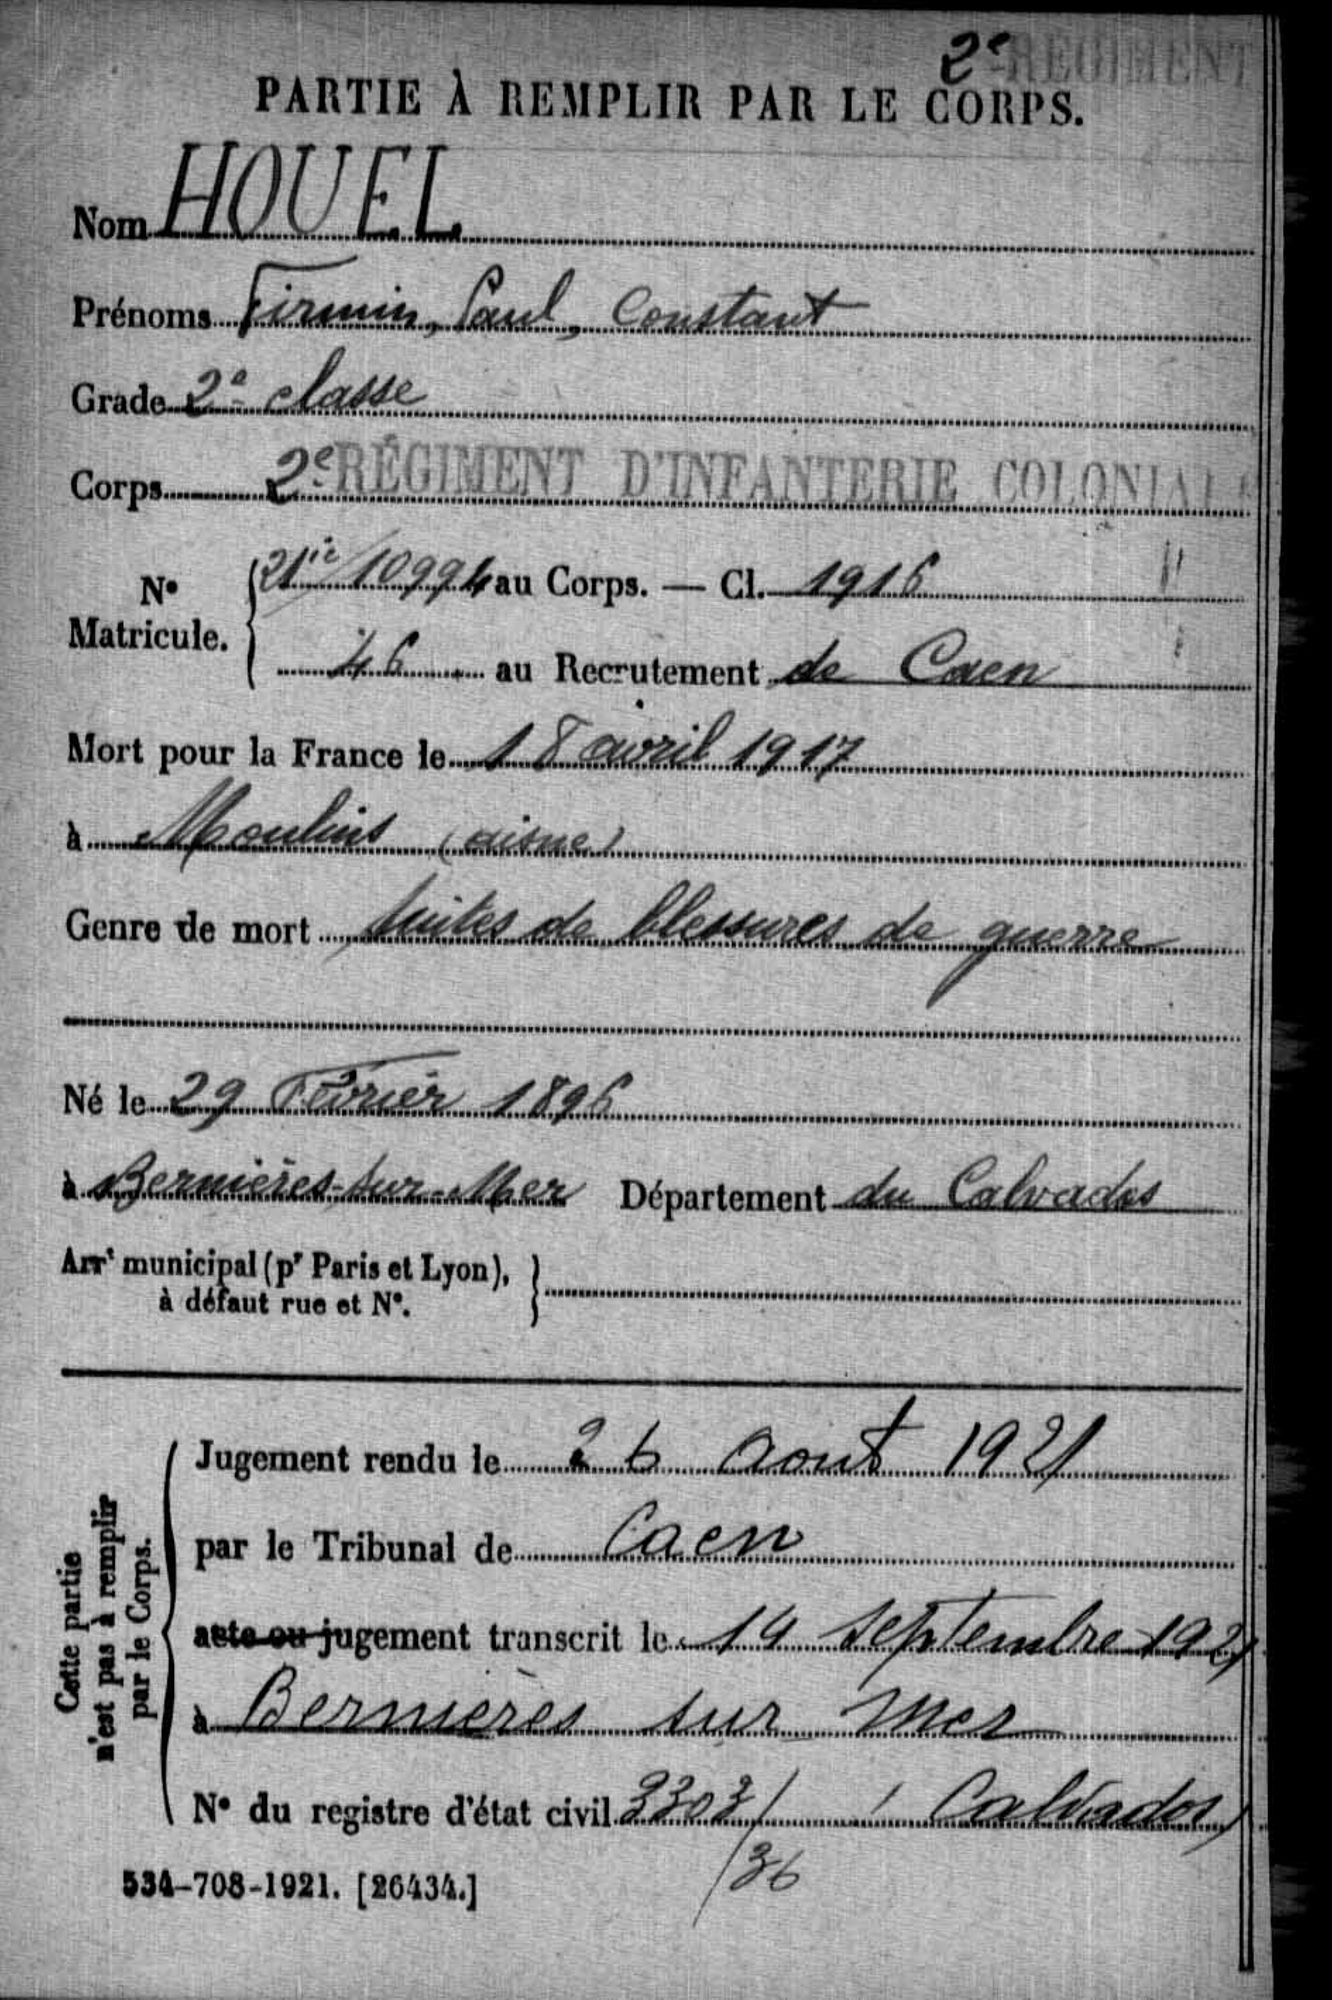 2e REGIMENT
PARTIE À REMPLIR PAR LE CORPS.
Nom HOUEL
Prénoms Firmin, Paul, Constant
Grade 2e classe
Corps 2e RÉGIMENT D'INFANTERIE COLONIALE
No Matricule. { 21ic/10994 au Corps. — Cl. 1916
46 au Recrutement de Caen
Mort pour la France le 18 avril 1917
à Moulins (aisne)
Genre de mort suites de blessures de guerre
Né le 29 Février 1896
à Bernières-sur-Mer Département du Calvados
Arrt municipal (pr Paris et Lyon), }
à défaut rue et No.
Cette partie
n'est pas à remplir
par le Corps.
Jugement rendu le 26 Aout 1921
par le Tribunal de Caen
acte ou jugement transcrit le 14 septembre 1921
à Bernières sur mer
No du registre d'état civil 3303/ ( Calvados)
/36
534-708-1921. [26434.]